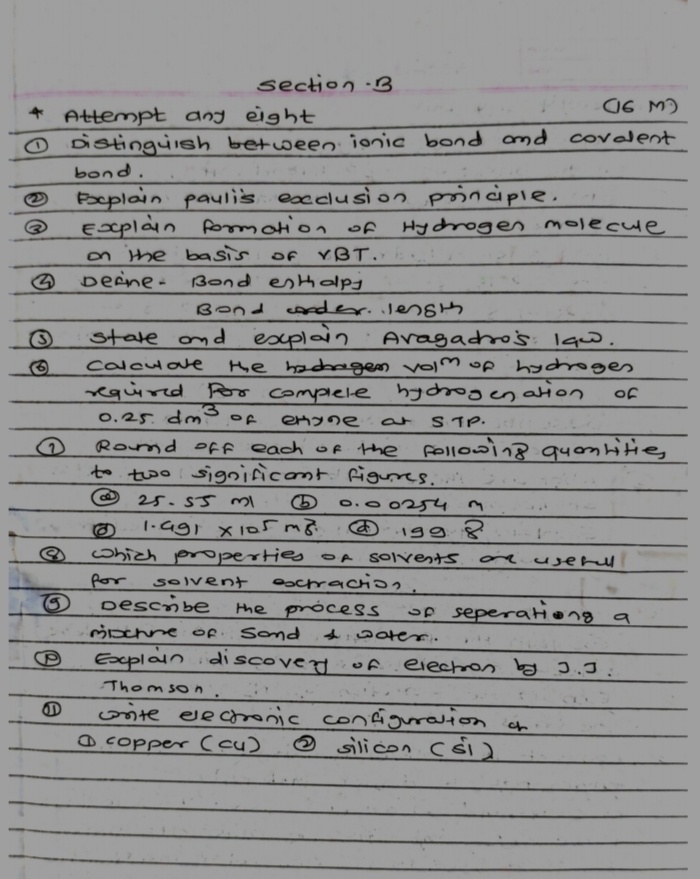 Section-B
* Attempt any eight (16 M)
① Distinguish between ionic bond and covalent
bond.
② Explain pauli's exclusion principle.
③ Explain formation of Hydrogen molecule
on the basis of VBT.
④ Define- Bond enthalpy
Bond length
⑤ State and explain Avagadro's law.
⑥ Calculate the vol^m of hydrogen
required for complete hydrogenation of
0.25 dm³ of ethyne at STP.
⑦ Round off each of the following quantities
to two significant figures.
ⓐ 25.55 ml ⓑ 0.00254 m
1.491 x 10⁵ mg ⓓ 199 g
⑧ which properties of solvents are useful
for solvent extraction.
⑨ Describe the process of seperationg a
mixture of sand & water.
⑩ Explain discovery of electron by J.J.
Thomson.
⑪ write electronic configuration of
① copper (cu) ② silicon (si)